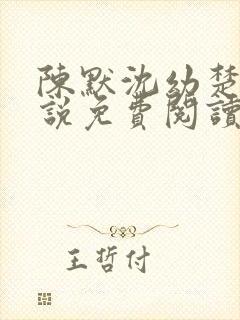 陳默沈幼楚
說免費閱讀
王哲付